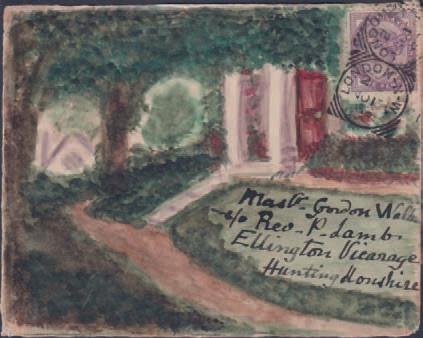 Mastr. Gordon
c/o Rev. P. Lamb
Ellington Vicarage
Huntingdonshire
LONDON